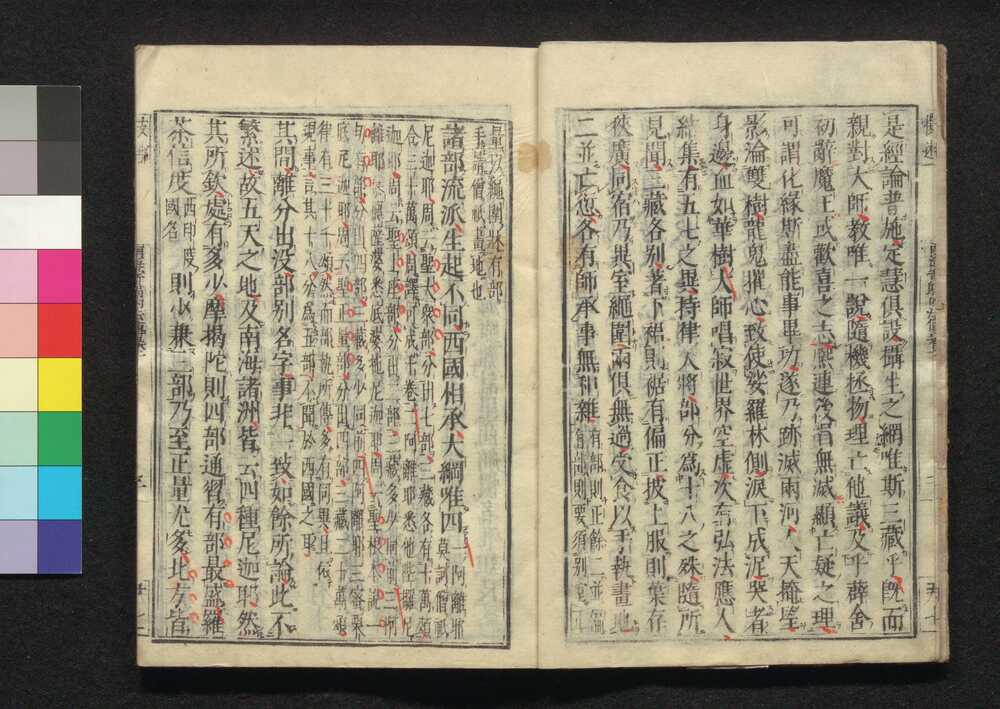 是經論普施定慧俱設攝生之網唯斯三藏乎既而
親對大師教唯一說隨機拯物理亡他議及乎薜舍
初辭魔王惑歡喜之志熙連後唱無滅顯亡疑之理
可謂化緣斯盡能事畢功遂乃跡滅兩河人天掩望
影淪雙樹龍鬼摧心致使娑羅林側淚下成泥哭者
身邊血如華樹大師唱寂世界空虛次有弘法應人
結集有五七之異持律大將部分為十八之殊隨所
見聞三藏各別著下裙則裾有偏正披上服則葉存
狹廣同宿乃異室繩圍兩俱無過受食以手執畫地
二並亡愆各有師承事無和雜有部則正餘三並偏
有部則要須別室
正量以繩圍牀有部
手請僧祇畫地也
諸部流派生起不同西國相承大綱唯四一阿離耶
莫訶僧祇
尼迦耶周云聖大眾部分出七部三藏各有十萬頌
合三十萬頌周譯可成千卷二阿離耶悉他陛攞尼
迦耶周云聖上座部分出三部三藏多少同前三阿
離耶慕攞薩婆悉底婆拖尼迦耶周云聖根本說一
切有部分出四部三藏多少同前四阿離耶三蜜栗
底尼迦耶周云聖正量部分出四部三藏二十萬頌
律有三十千頌然而部執所傳多有同異且依
現事言其十八分為五部不聞於西國之耳
其間離分出沒部別名字事非一致如餘所論此不
繁述故五天之地及南海諸洲皆云四種尼迦耶然
其所欽處有多少摩揭陀則四部通習有部最盛羅
荼信度西印度
國名則少兼三部乃至正量尤多北方皆